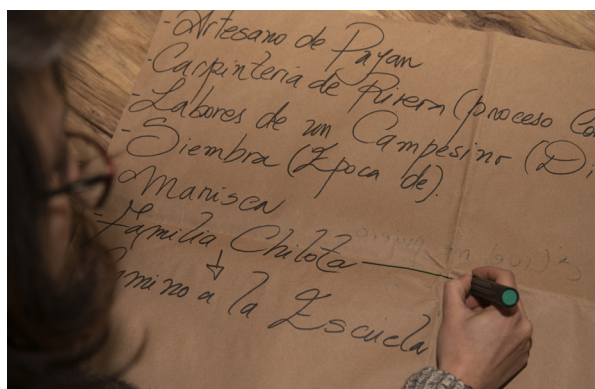 -Artesano de Payan
-Carpintería de Rivera (proceso Co
-Labores de un Campesino (Di
-Siembra (Epoca de).
Marisca
-Familia Chilota
mino a la Escuela